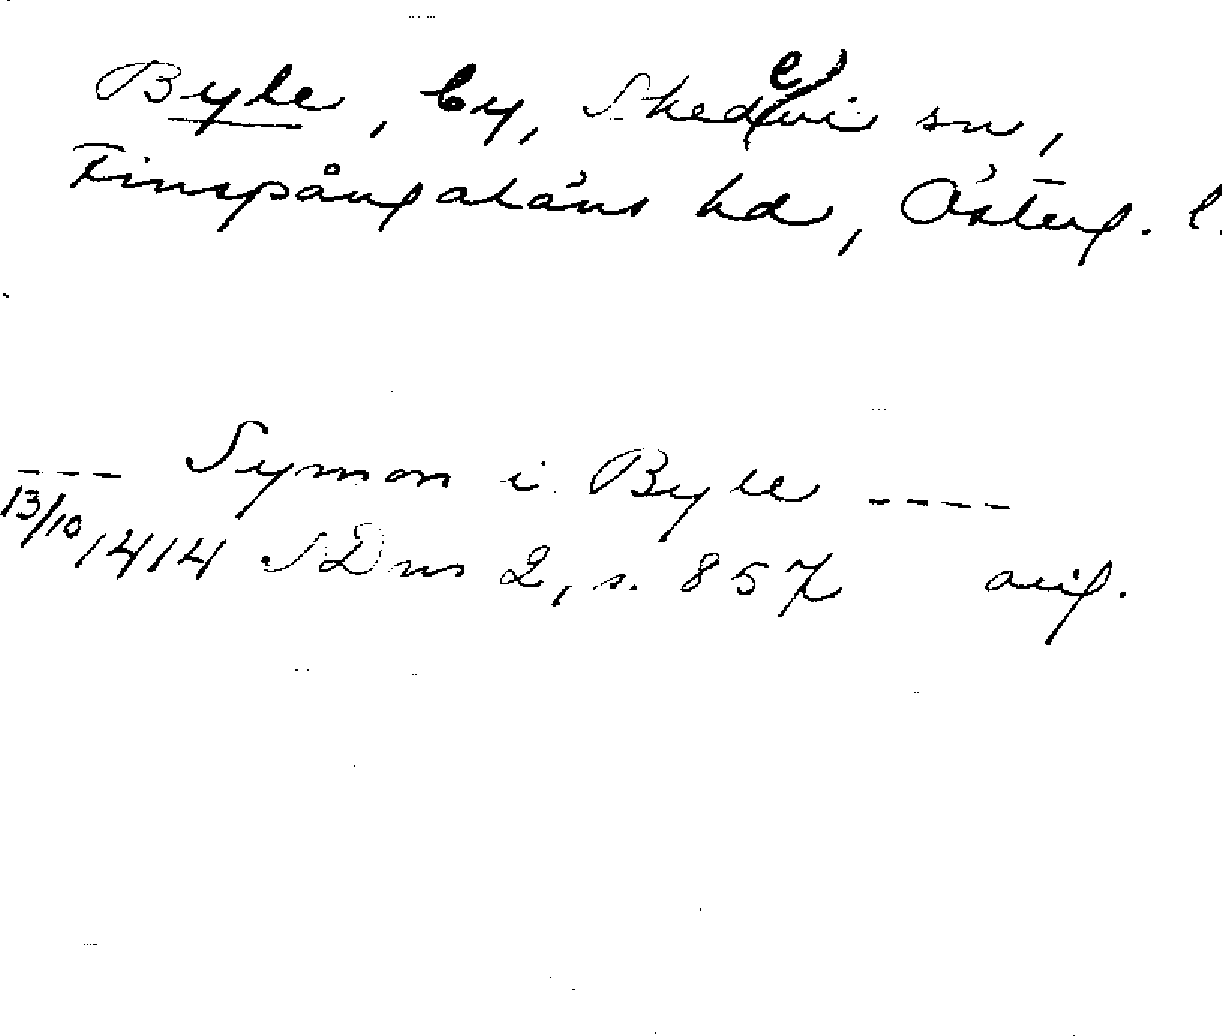 Byle, by, Skedevi sn,
Finspångaläns hd, Österg. l.
--- Symon i Byle ----
13/10 1414 SDns 2, s. 857 avig.